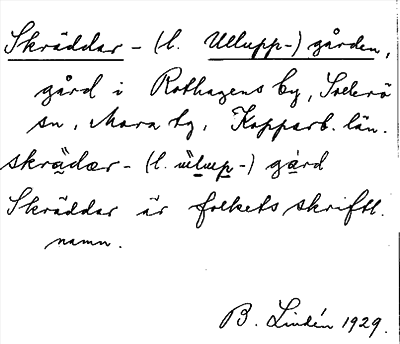 Skräddar - (l. Ullupp-) gården,
gård i Rothagens by, Sollerö
sn, Mora tg, Kopparb. län.
skrädær- (l. ùlup-) gård
Skräddar är folkets skriftl.
namn.
B. Lindén 1929.